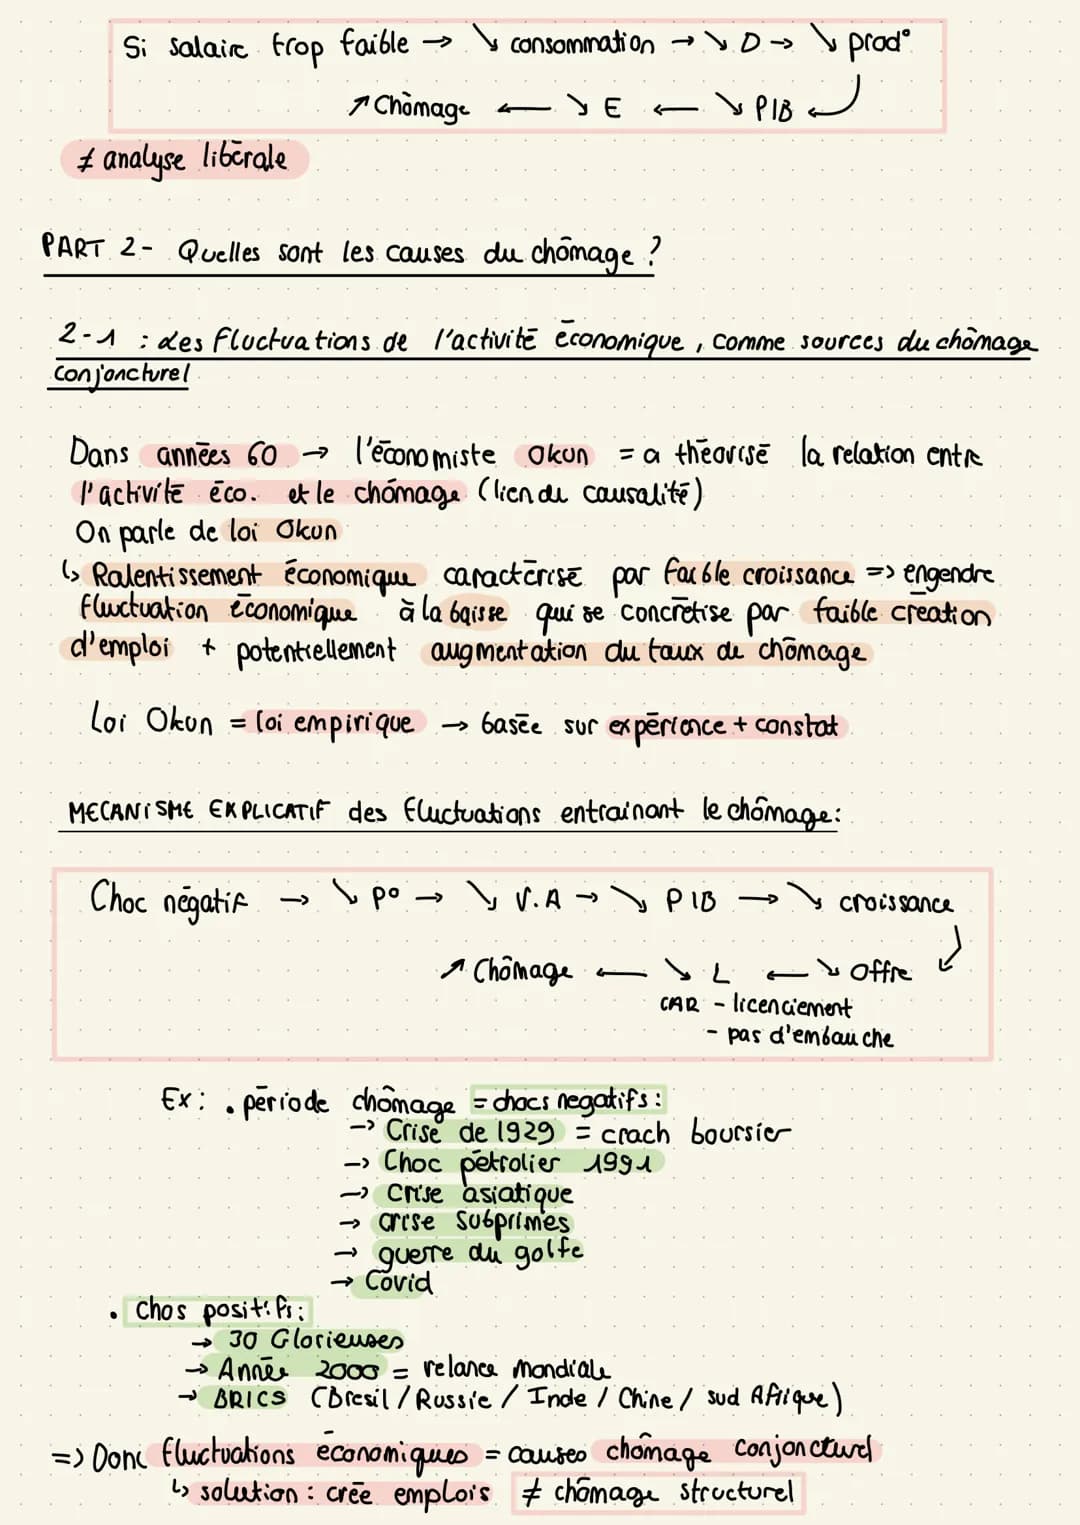 Si salaire trop faible → ↘ consommation → ↘ D → ↘ prod°
↗ Chômage ← ↘ E ← ↘ PIB ←
≠ analyse libérale
PART 2 - Quelles sont les causes du chômage ?
2-1 : Les fluctuations de l'activité économique, comme sources du chômage
conjoncturel
Dans années 60 → l'économiste Okun = a théorisé la relation entre
l'activité éco. et le chômage (lien de causalité)
On parle de loi Okun
↳ Ralentissement économique caractérisé par faible croissance => engendre
fluctuation économique à la baisse qui se concrétise par faible création
d'emploi + potentiellement augmentation du taux de chômage
Loi Okun = loi empirique → basée sur expérience + constat
MECANISME EXPLICATIF des fluctuations entrainant le chômage :
Choc négatif → ↘ p° → ↘ V.A → ↘ PIB → ↘ croissance
↗ Chômage ← ↘ L ← ↘ offre ↙
CAR - licenciement
- pas d'embauche
Ex : . période chômage = chocs negatifs :
→ Crise de 1929 = crach boursier
→ Choc pétrolier 1991
→ Crise asiatique
→ crise subprimes
→ guerre du golfe
→ Covid
. Chos positifs :
→ 30 Glorieuses
→ Année 2000 = relance mondiale
→ BRICS (Bresil / Russie / Inde / Chine / sud Afrique)
=> Donc fluctuations économiques = causes chômage conjoncturel
↳ solution : crée emplois ≠ chômage structurel